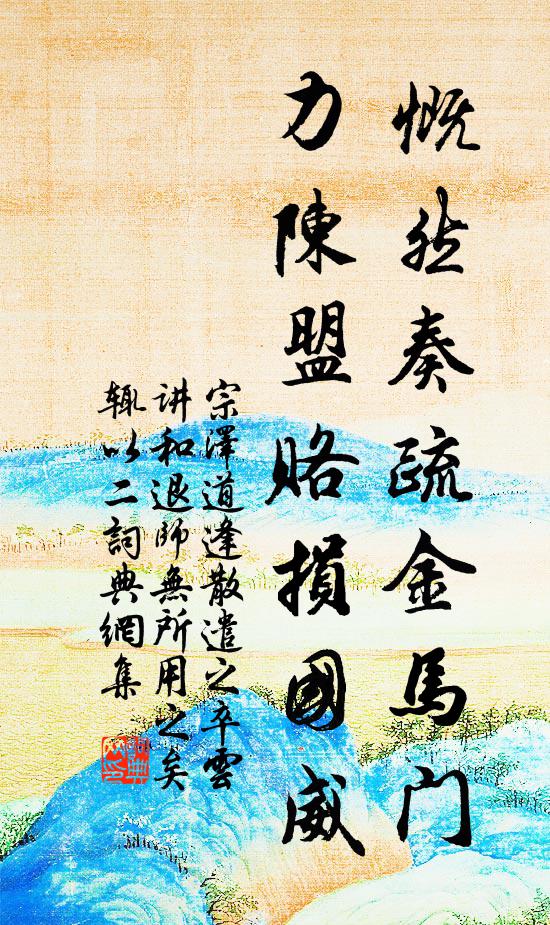 慨然奏疏金馬门
力陳盟賂損國威
宗澤道逢散遣之卒雲
讲和退師無所用之矣
辄以二詞典網集